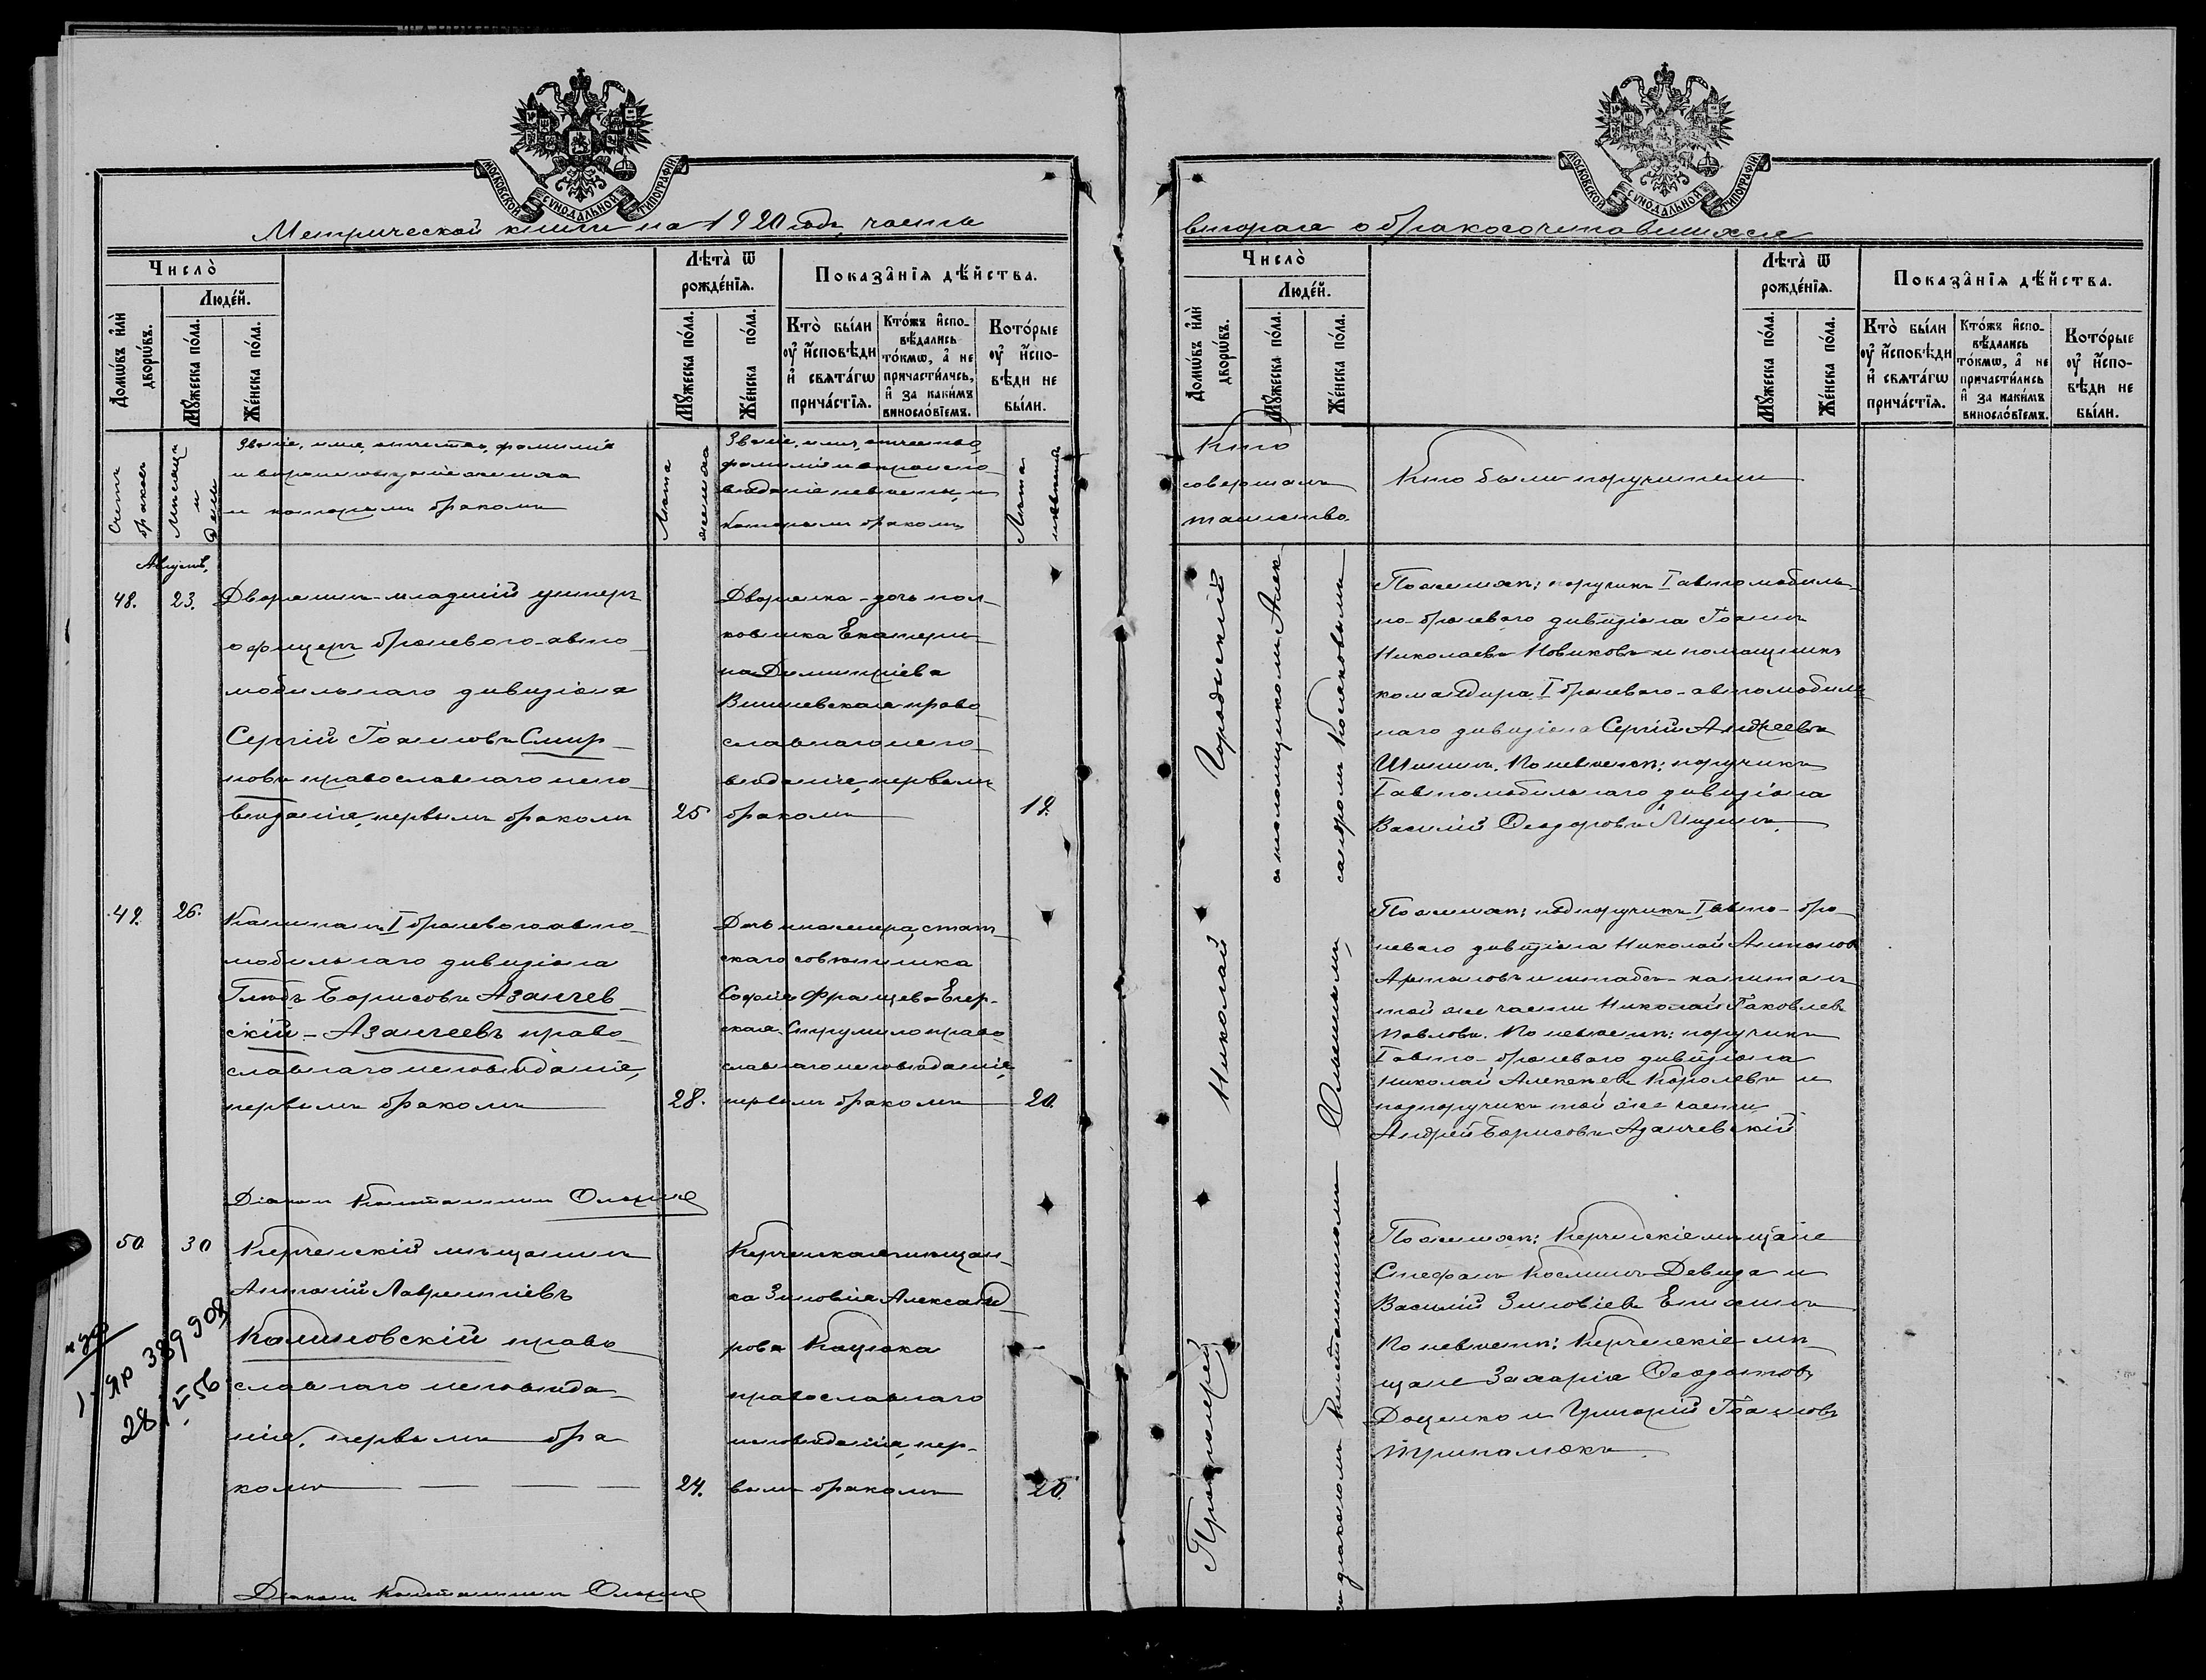 МОСКОВСКОЙ СѴНОДАЛЬНОЙ ТИПОГРАФІИ
Метрической книги на 1920 годъ, часть
Число̀
Людéй.
Домѡ́въ и҆лѝ дворѡ́въ.
Мꙋ́жеска по́ла.
Же́нска по́ла.
Лѣ́та ѿ рожде́нїѧ.
Мꙋ́жеска по́ла.
Же́нска по́ла.
Показа̂нїѧ дѣ́йства.
Кто̀ бы́ли оу҆ и҆сповѣди и҆ свѧта́гѡ прича́стїѧ.
Кто́жъ и҆спо-
вѣ́дались
то́кмѡ, а҆ не
причасти́лись,
и҆ за каки́мъ
винослóвїемъ.
Кото́рые
оу҆ и҆спо-
вѣди не
бы́ли.
Счетъ браковъ
Мѣсяцъ и день
Званіе, имя, отчество, фамилія
и вѣроисповѣданіе жениха
и которымъ бракомъ
Лѣта жениха
Званіе, имя, отчество
фамилія и вѣроиспо-
вѣданіе невѣсты и
которымъ бракомъ
Лѣта невѣсты
Августъ,
48. 23.
Дворянинъ-младшій унтеръ
офицеръ броневого-авто
мобильнаго дивизіона
Сергій Іоанновъ Смир-
новъ православнаго испо-
вѣданія, первымъ бракомъ
25
Дворянка-дочь пол-
ковника Екатери-
на Димитріева
Вишневская право-
славнаго испо-
вѣданія, первымъ
бракомъ
19.
49. 26.
Капитанъ I броневого авто-
мобильнаго дивизіона
Глѣбъ Борисовъ Азанчев-
скій-Азанчеевъ право-
славнаго исповѣданія,
первымъ бракомъ
28.
Дочь инженера, стат-
скаго совѣтника
Софія Францева Егер-
ская-Струмило право-
славнаго исповѣданія,
первымъ бракомъ
20.
Діаконъ Константинъ
50 30
Керченскій мѣщанинъ
Антоній Лаврентіевъ
Калиновскій право
славнаго исповѣда-
нія, первымъ бра
комъ
24.
Керченская мѣщан-
ка Зиновія Александ-
рова Кацюка
православнаго
исповѣданія, пер-
вымъ бракомъ
20.
1-ЯР 389908
28/I-56
Діаконъ Константинъ
МОСКОВСКОЙ СѴНОДАЛЬНОЙ ТИПОГРАФІИ
вторая о бракосочетавшихся
Число̀
Людéй.
Домѡ́въ и҆лѝ дворѡ́въ.
Мꙋ́жеска по́ла.
Же́нска по́ла.
Лѣ́та ѿ рожде́нїѧ.
Мꙋ́жеска по́ла.
Же́нска по́ла.
Показа̂нїѧ дѣ́йства.
Кто̀ бы́ли оу҆ и҆сповѣди и҆ свѧта́гѡ прича́стїѧ.
Кто́жъ и҆спо-
вѣ́дались
то́кмѡ, а҆ не
причасти́лись
и҆ за каки́мъ
винослóвїемъ.
Кото́рые
оу҆ и҆спо-
вѣди не
бы́ли.
Кто
совершалъ
таинство.
Кто были поручители
Протоіерей Николай Городискій
съ псаломщикомъ Алек
съ діакономъ Константиномъ
сандромъ
По женихѣ: поручикъ I автомобиль-
но-броневого дивизіона Іоаннъ
Николаевъ Новиковъ и помощникъ
командира I броневого-автомобиль-
наго дивизіона Сергій Андреевъ
Шишинъ. По невѣстѣ: поручикъ
I автомобильнаго дивизіона
Василій Ѳеодоровъ
По женихѣ: подпоручикъ I авто-бро-
неваго дивизіона Николай Антоновъ
Артыновъ и штабсъ-капитанъ
той же части Николай Яковлевъ
Павловъ. По невѣстѣ: поручикъ
I авто-броневого дивизіона
Николай Алексѣевъ Королевъ и
подпоручикъ той же части
Андрей Борисовъ Азанчевскій
По женихѣ: Керченскіе мѣщане
Стефанъ Косминъ Девида и
Василій Зиновіевъ
По невѣстѣ: Керченскіе мѣ-
щане Захарія Ѳеодотовъ
Доценко и Григорій Іоанновъ